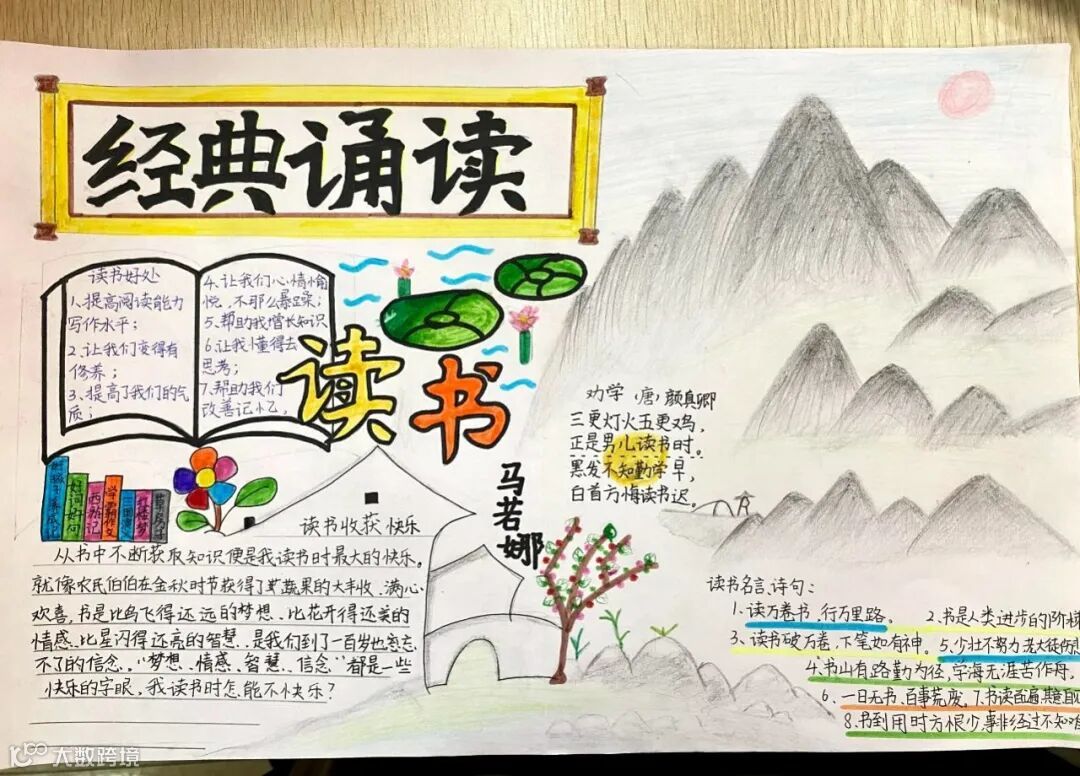 经典诵读
读书好处
1、提高阅读能力
写作水平；
2、让我们变得有
修养；
3、提高了我们的气
质；
4、让我们心情愉
悦，不那么暴躁；
5、帮助我增长知识
6、让我懂得去
思考；
7、帮助我们
改善记忆。
读书
马若娜
好词好句
西游记
读书收获 快乐
从书中不断获取知识便是我读书时最大的快乐。
就像农民伯伯在金秋时节获得了蔬果的大丰收、满心
欢喜。书是比鸟飞得还远的梦想、比花开得还美的
情感、比星闪得还亮的智慧、是我们到了一百岁也忘
不了的信念、“梦想、情感、智慧、信念”都是一些
快乐的字眼，我读书时怎能不快乐？
劝学（唐）颜真卿
三更灯火五更鸡，
正是男儿读书时。
黑发不知勤学早，
白首方悔读书迟。
读书名言、诗句：
1、读万卷书，行万里路。
2、书是人类进步的阶梯
3、读书破万卷，下笔如有神。
5、少壮不努力 老大徒伤悲
4、书山有路勤为径，学海无涯苦作舟，
6、一日无书、百事荒废。
7、书读百遍，其意自
8、书到用时方恨少，事非经过不知难
大数跨境